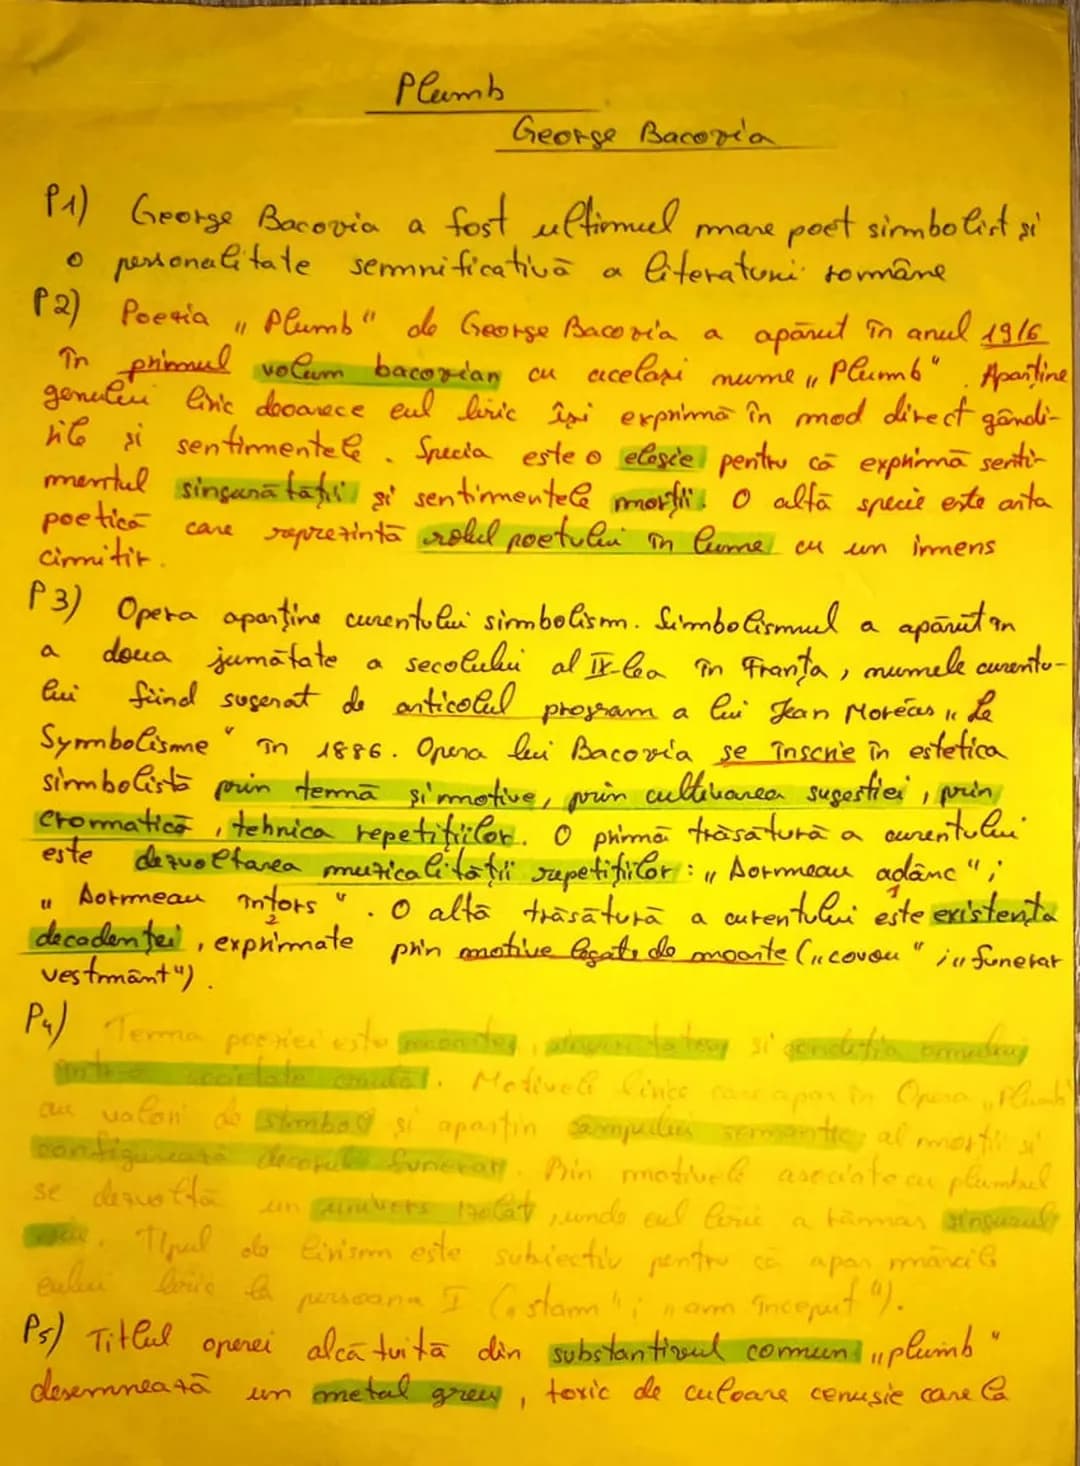 Plumb
George Bacovia
P1) George Bacovia a fost ultimul mare poet simbolist și
o personalitate semnificativă a literaturii române
P2) Poezia „Plumb" de George Bacovia a apărut în anul 1916
în primul volum bacovian cu același nume „Plumb". Aparține
genului liric deoarece eul liric își exprimă în mod direct gându-
rile și sentimentele. Specia este o elegie pentru că exprimă senti-
mentul singurătății și sentimentele morții. O altă specie este arta
poetică care reprezintă rolul poetului în lume cu un imens
cimitir.
P3) Opera aparține curentului simbolism. Simbolismul a apărut în
a doua jumătate a secolului al IX-lea în Franța, numele curentu-
lui fiind sugerat de articolul program a lui Jean Moréas „Le
Symbolisme" în 1886. Opera lui Bacovia se înscrie în estetica
simbolistă prin temă și motive, prin cultivarea sugestiei, prin
cromatică, tehnica repetițiilor. O primă trăsătură a curentului
este dezvoltarea muzicalității repetițiilor: „Dormeau adânc";
„Dormeau întors". O altă trăsătură a curentului este existența
decadenței, exprimate prin motive legate de moarte („cavou"; „funerar
vestmânt").
P4) Tema poeziei este moartea, singurătatea și condiția omului
într-o societate . Motivele lirice care apar în Opera „Plumb"
au valori de simbol și aparțin câmpului semantic al morții și
configurează decorul funerar. Din motivele asociate cu plumbul
se dezvoltă un univers izolat, unde eul liric a rămas singurul
. Tipul de lirism este subiectiv pentru că apar mărcile
eului liric la persoana I („stam"; „am început").
P5) Titlul operei alcătuită din substantivul comun „plumb"
desemnează un metal greu, toxic de culoare cenusie care la